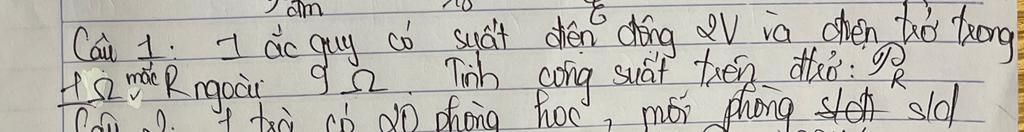 Câu 1: 1 ắc quy có suất điện động 2V và điện trở trong
1Ω mắc R ngoài 9 Ω. Tính công suất trên điện trở: P_R
Câu 2: 1 trường có 20 phòng học, mỗi phòng sd